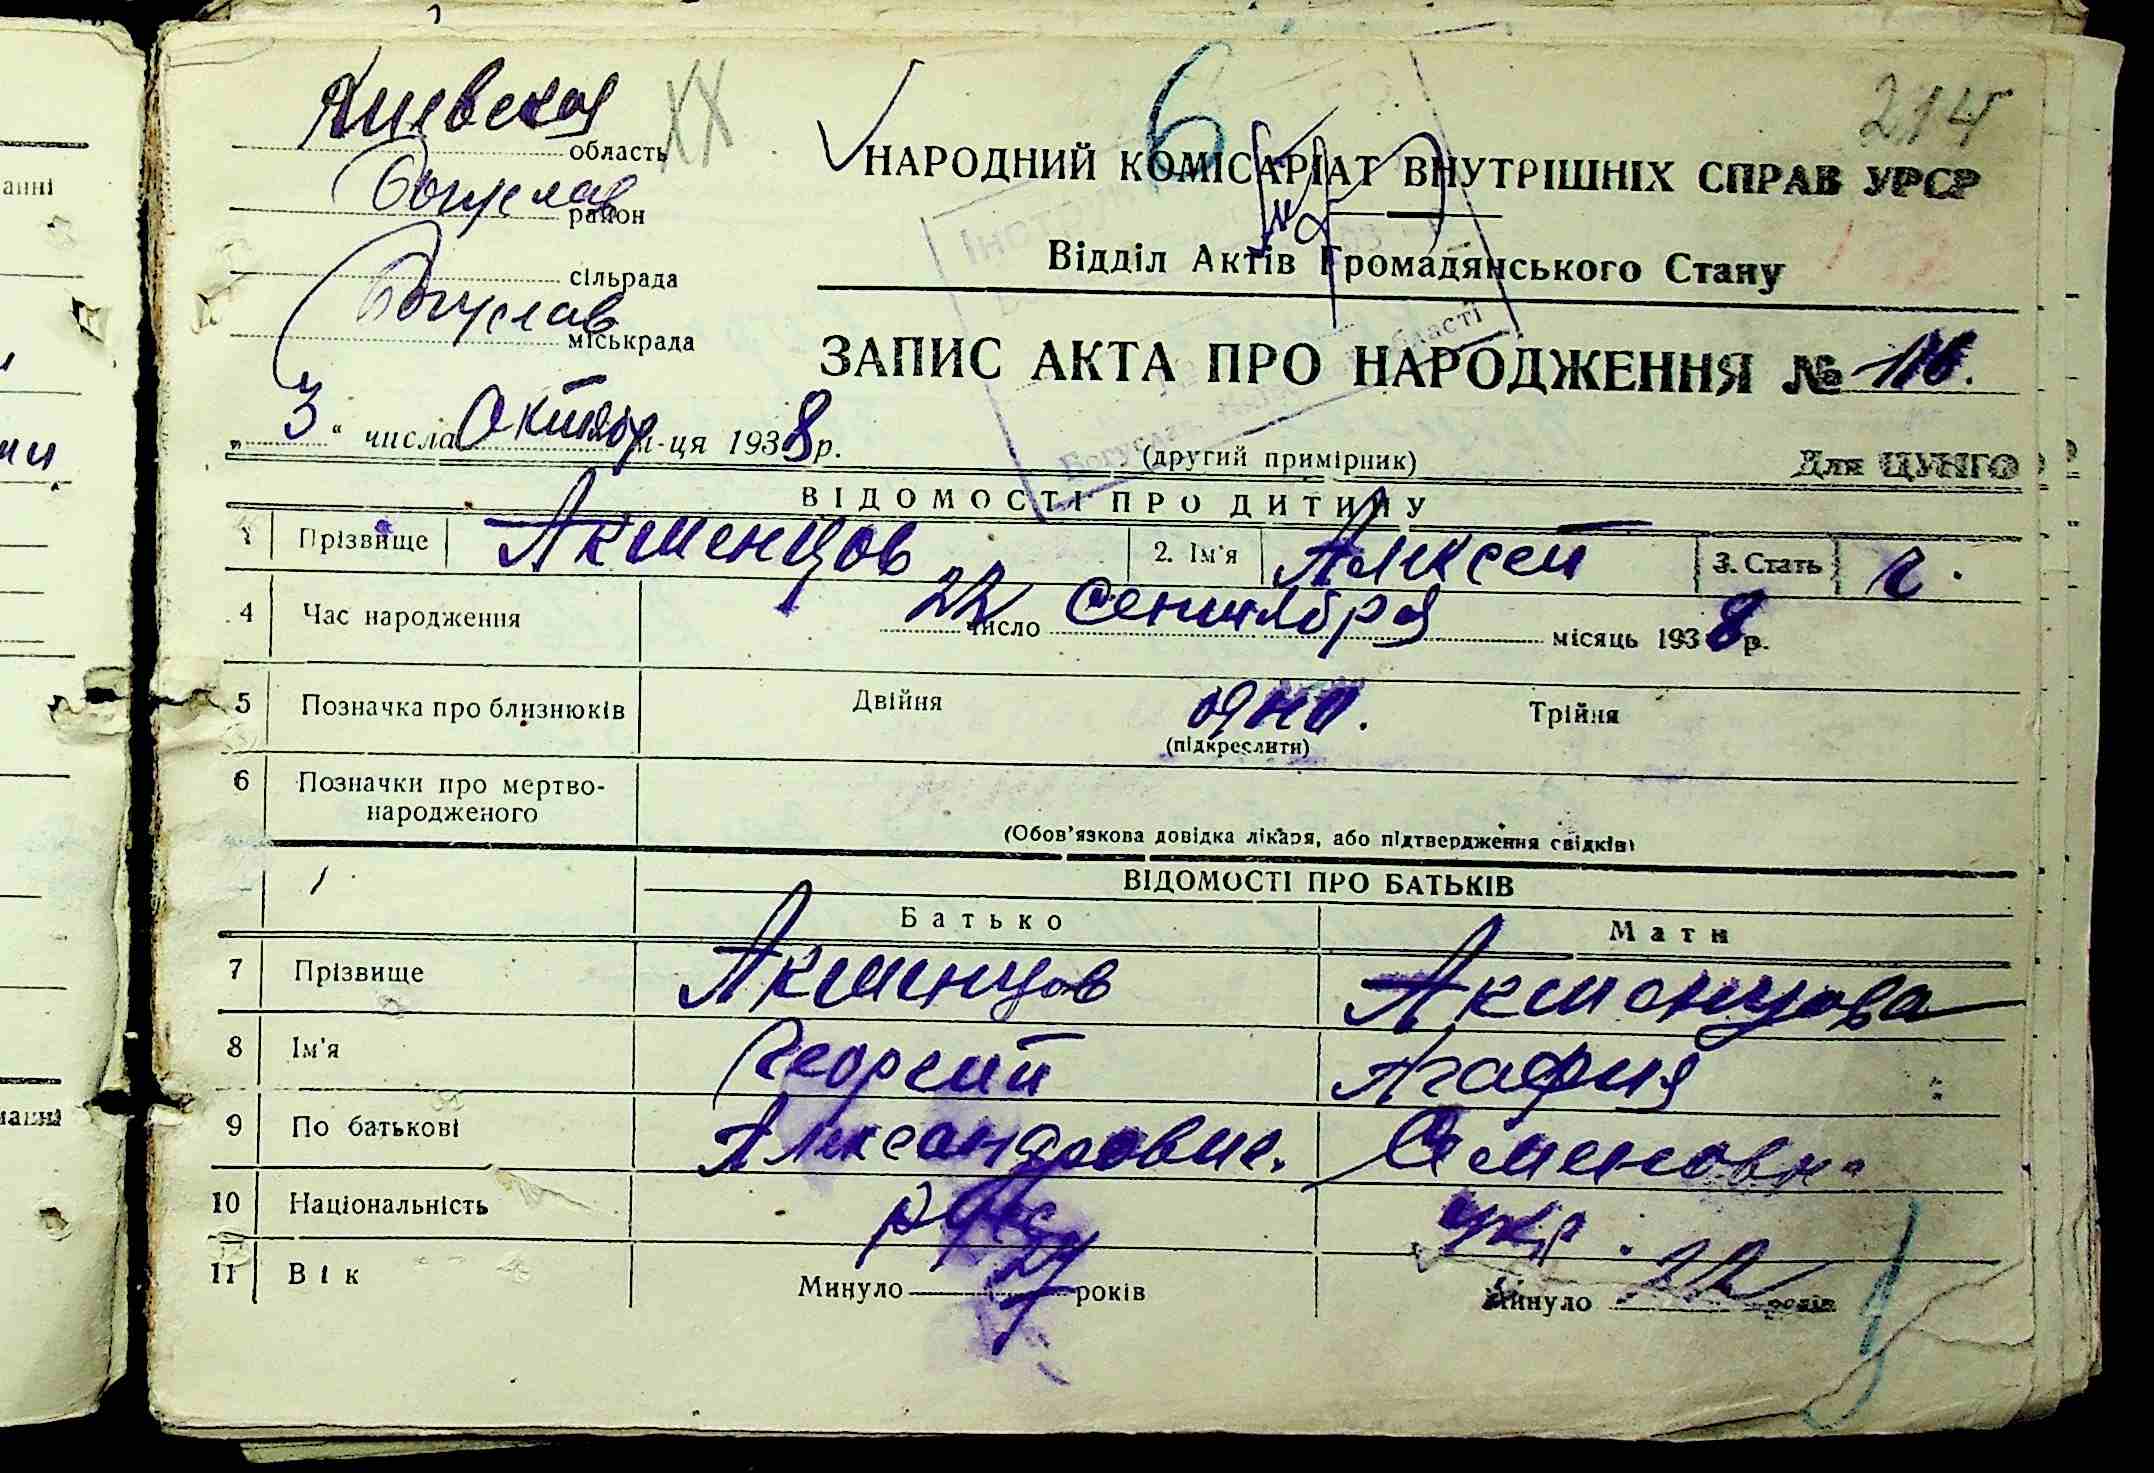 Киевская область
Богуслав район
сільрада
Богуслав міськрада
214
НАРОДНИЙ КОМІСАРІАТ ВНУТРІШНІХ СПРАВ УРСР
Відділ Актів Громадянського Стану
ЗАПИС АКТА ПРО НАРОДЖЕННЯ №
„3“ числа Октябр м-ця 1938 р.
(другий примірник)
Для ЦУНГО
ВІДОМОСТІ ПРО ДИТИНУ
1 Прізвище Аксенцов 2. Ім'я Алексей 3. Стать ч.
4 Час народження 22 число Сентября місяць 1938 р.
5 Позначка про близнюків Двійня одно. Трійня
(підкреслити)
6 Позначки про мертво-
народженого
(Обов'язкова довідка лікаря, або підтвердження свідків)
ВІДОМОСТІ ПРО БАТЬКІВ
Батько Мати
7 Прізвище Аксенцов Аксенцова
8 Ім'я Георгий Агафия
9 По батькові Александрович. Семеновн
10 Національність рус укр.
11 Вік Минуло 27 років Минуло 22 років